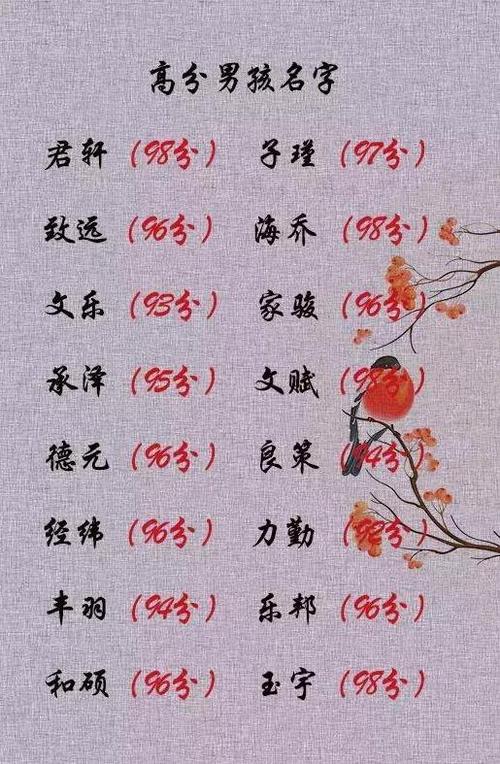 高分男孩名字
君轩（98分） 子瑾（97分）
致远（96分） 海乔（98分）
文乐（93分） 家骏（96分）
承泽（95分） 文赋（98分）
德元（96分） 良策（94分）
经纬（96分） 力勤（92分）
丰羽（94分） 乐邦（96分）
和硕（96分） 玉宇（98分）